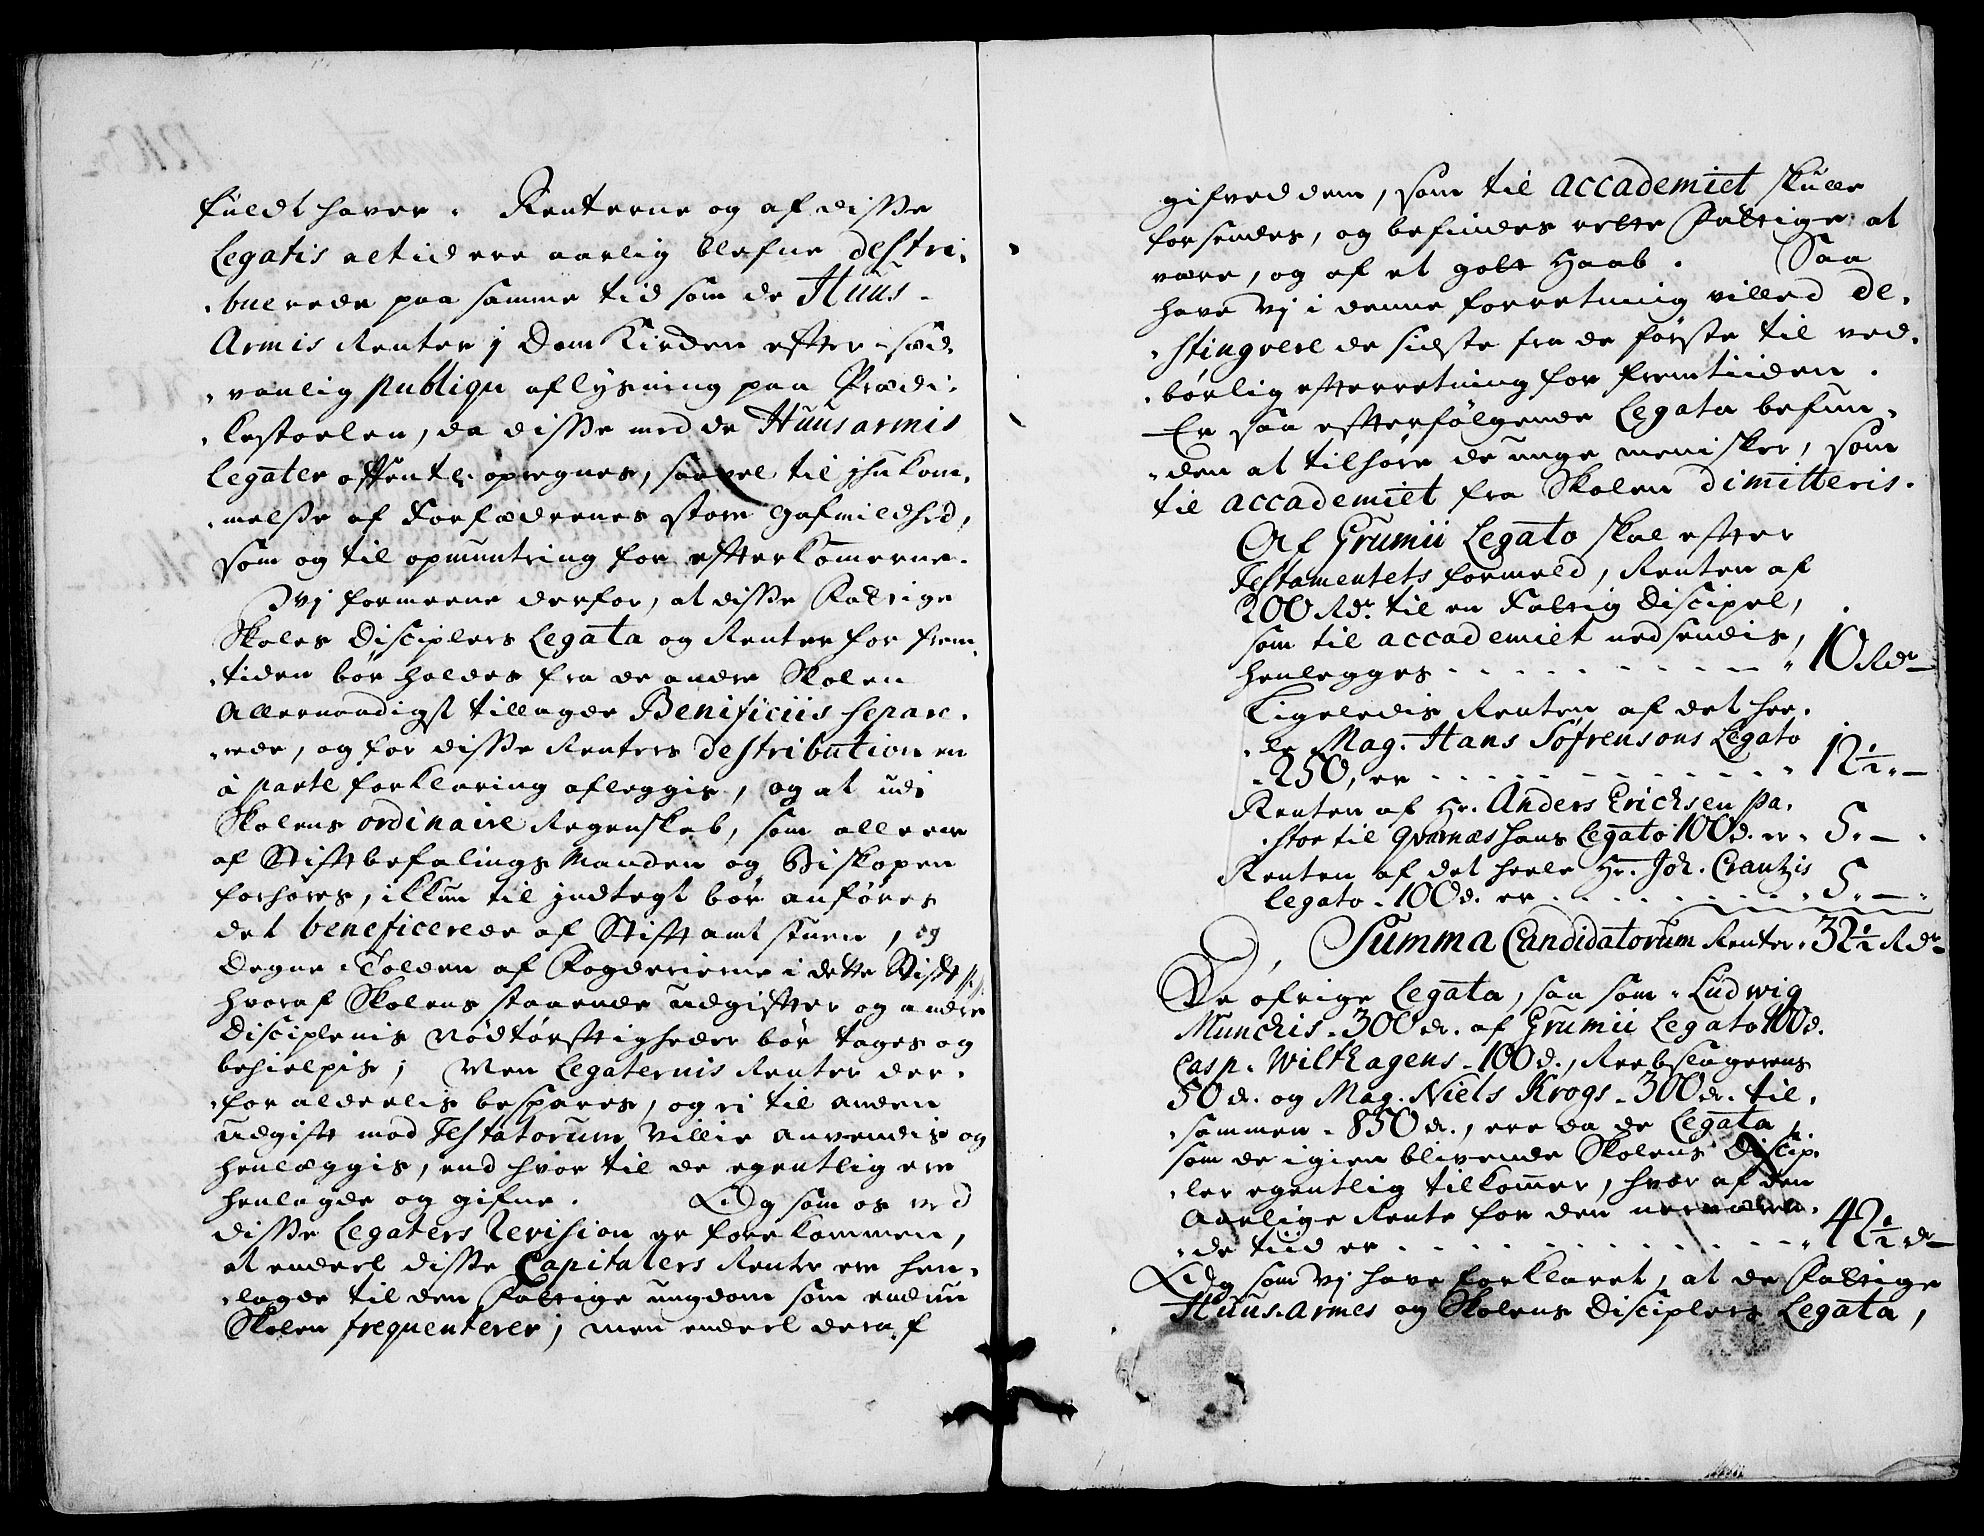 fuldt haver. Renterne og af disse
Legatis altid ere aarlig blefne destri,
buerede paa samme tid som de Huus-
Armis Renter j Dom Kirken efter sæd,
vanlig publiqu aflysning paa Prædi,
kestoelen, da disse med de Huusarmis
Legater offentl. opregnes, saavel til jhukom,
melse af Forfædrenes store Gafmildhed,
som og til opmuntring for efterkomerne.
Vj formeene derfor, at disse Fattige
Skoles Disciplers Legata og Renter for frem,
tiden bør holdes fra de andre Skolen
Allernaadigst tillagde Benificiis separe,
rede, og for disse Renters destribution en
à parte forklaring afleggis, og at udj
Skolens ordinaire Regenskab, som alleene
af Stiftbefalings Manden og Biskopen
forhøres, ikkun til jndtegt bør anføres
det beneficerede af Stiftamtstuen, og
Degne Tolden af Fogderierne i dette Stift,
hvoraf Skolens staaende udgifter og andre
Disciplenis Nødtørftigheder bør tages og
behielpis; Men Legaternis Renter der,
for alderlis bespares, og ej til anden
udgift mod Testatorum Villie anvendis og
henlæggis, end hvor til de egentlig ere
henlagde og gifne. Og som os ved
disse Legaters Revision er forekommen,
at endeel disse Capitalers Rente ere hen,
lagde til den Fattige ungdom som endnu
Skolen frequenterer; men endeel deraf
gifved dem, som til accademiet skulle
forsendes, og befindes rette Fattige at
være, og af et gott Haab. Saa
have Vj i denne forretning villed de,
stingvere de sidste fra de første til ved,
børlig efterretning for fremtiiden.
Er saa efterfølgende Legata befun,
den at tilhøre de unge mennisker, som
til accademiet fra Skolen dimitteris.
Af Grumii Legato skal efter
Testamentets formeld, Renten af
200 Rdr. til en Fattig Discipel,
som til accademiet nedsendis,
henlegges . . . . . . . . . 10 Rdr
Ligeledis Renten af det hee,
le Mag. Hans Søfrensøns Legato
250, er . . . . . . . . . 12½ . —
Renten af Hr. Anders Erichsen Pa,
stor til Qvernæs hans Legato 100 d. er . 5 . — .
Renten af det heele Hr. Joh. Crantzis
Legato . 100 d. er . . . . . . . 5 . — .
Summa Candidatorum Renter . 32½ Rdr
De ofrige Legata, saa som . Ludwig
Munchis . 300 dr. af Grumii Legato 100 d.
Casp. Wilthagens . 100 d., Reebslagerens
50 d. og Mag. Niels Krogs . 300 dr. til,
sammen . 850 dr., ere da de Legata,
som de igien blivende Skolens Discip,
ler egentlig tilkommer, hvor af den
Aarlige Rente for den nerværen,
de tiid er . . . . . . . . . . . . 42½ dr
Og som Vj have forklaret, at de Fattige
Huus-armes og Skolens Disciplers Legata,